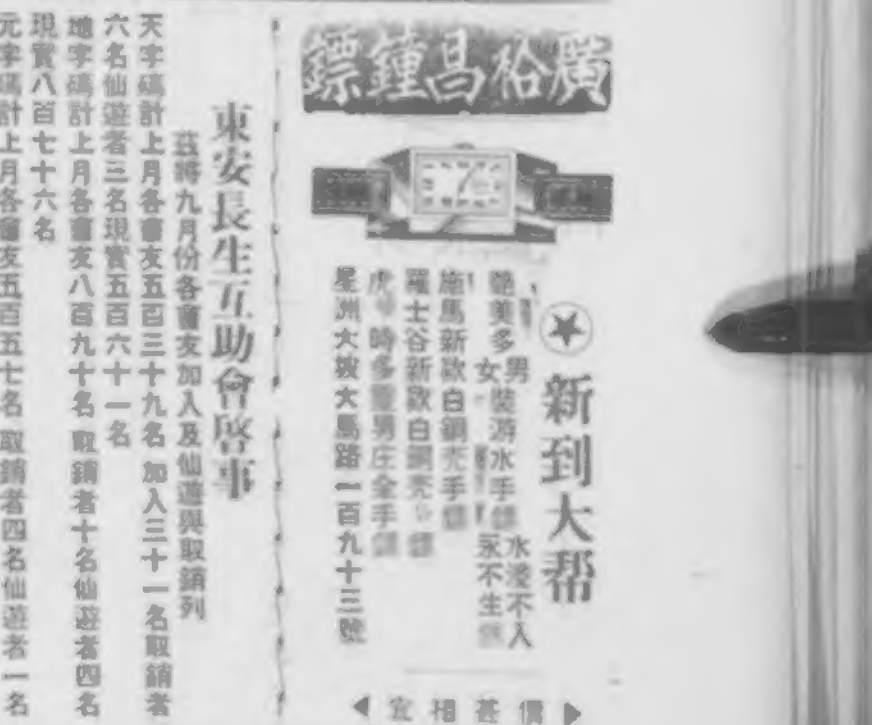 廣裕昌鐘鏢
新到大帮
艶美多
男
女
裝游水手
水浸不入
永不生
施馬新欵白鋼売手錶
羅士谷新欵白鋼売
時多
男庄全手
星洲大坡大馬路一百九十三號
價甚相宜
東安長生互助會啓事
茲將九月份各會友加入及仙遊與取銷列
天字碼計上月各會友五百三十九名 加入三十一名取銷者
六名仙遊者三名現實五百六十一名
地字碼計上月各會友八百九十名 取銷者十名仙遊者四名
現實八百七十六名
元字碼計上月各會友五百五七名 取銷者四名仙遊者一名